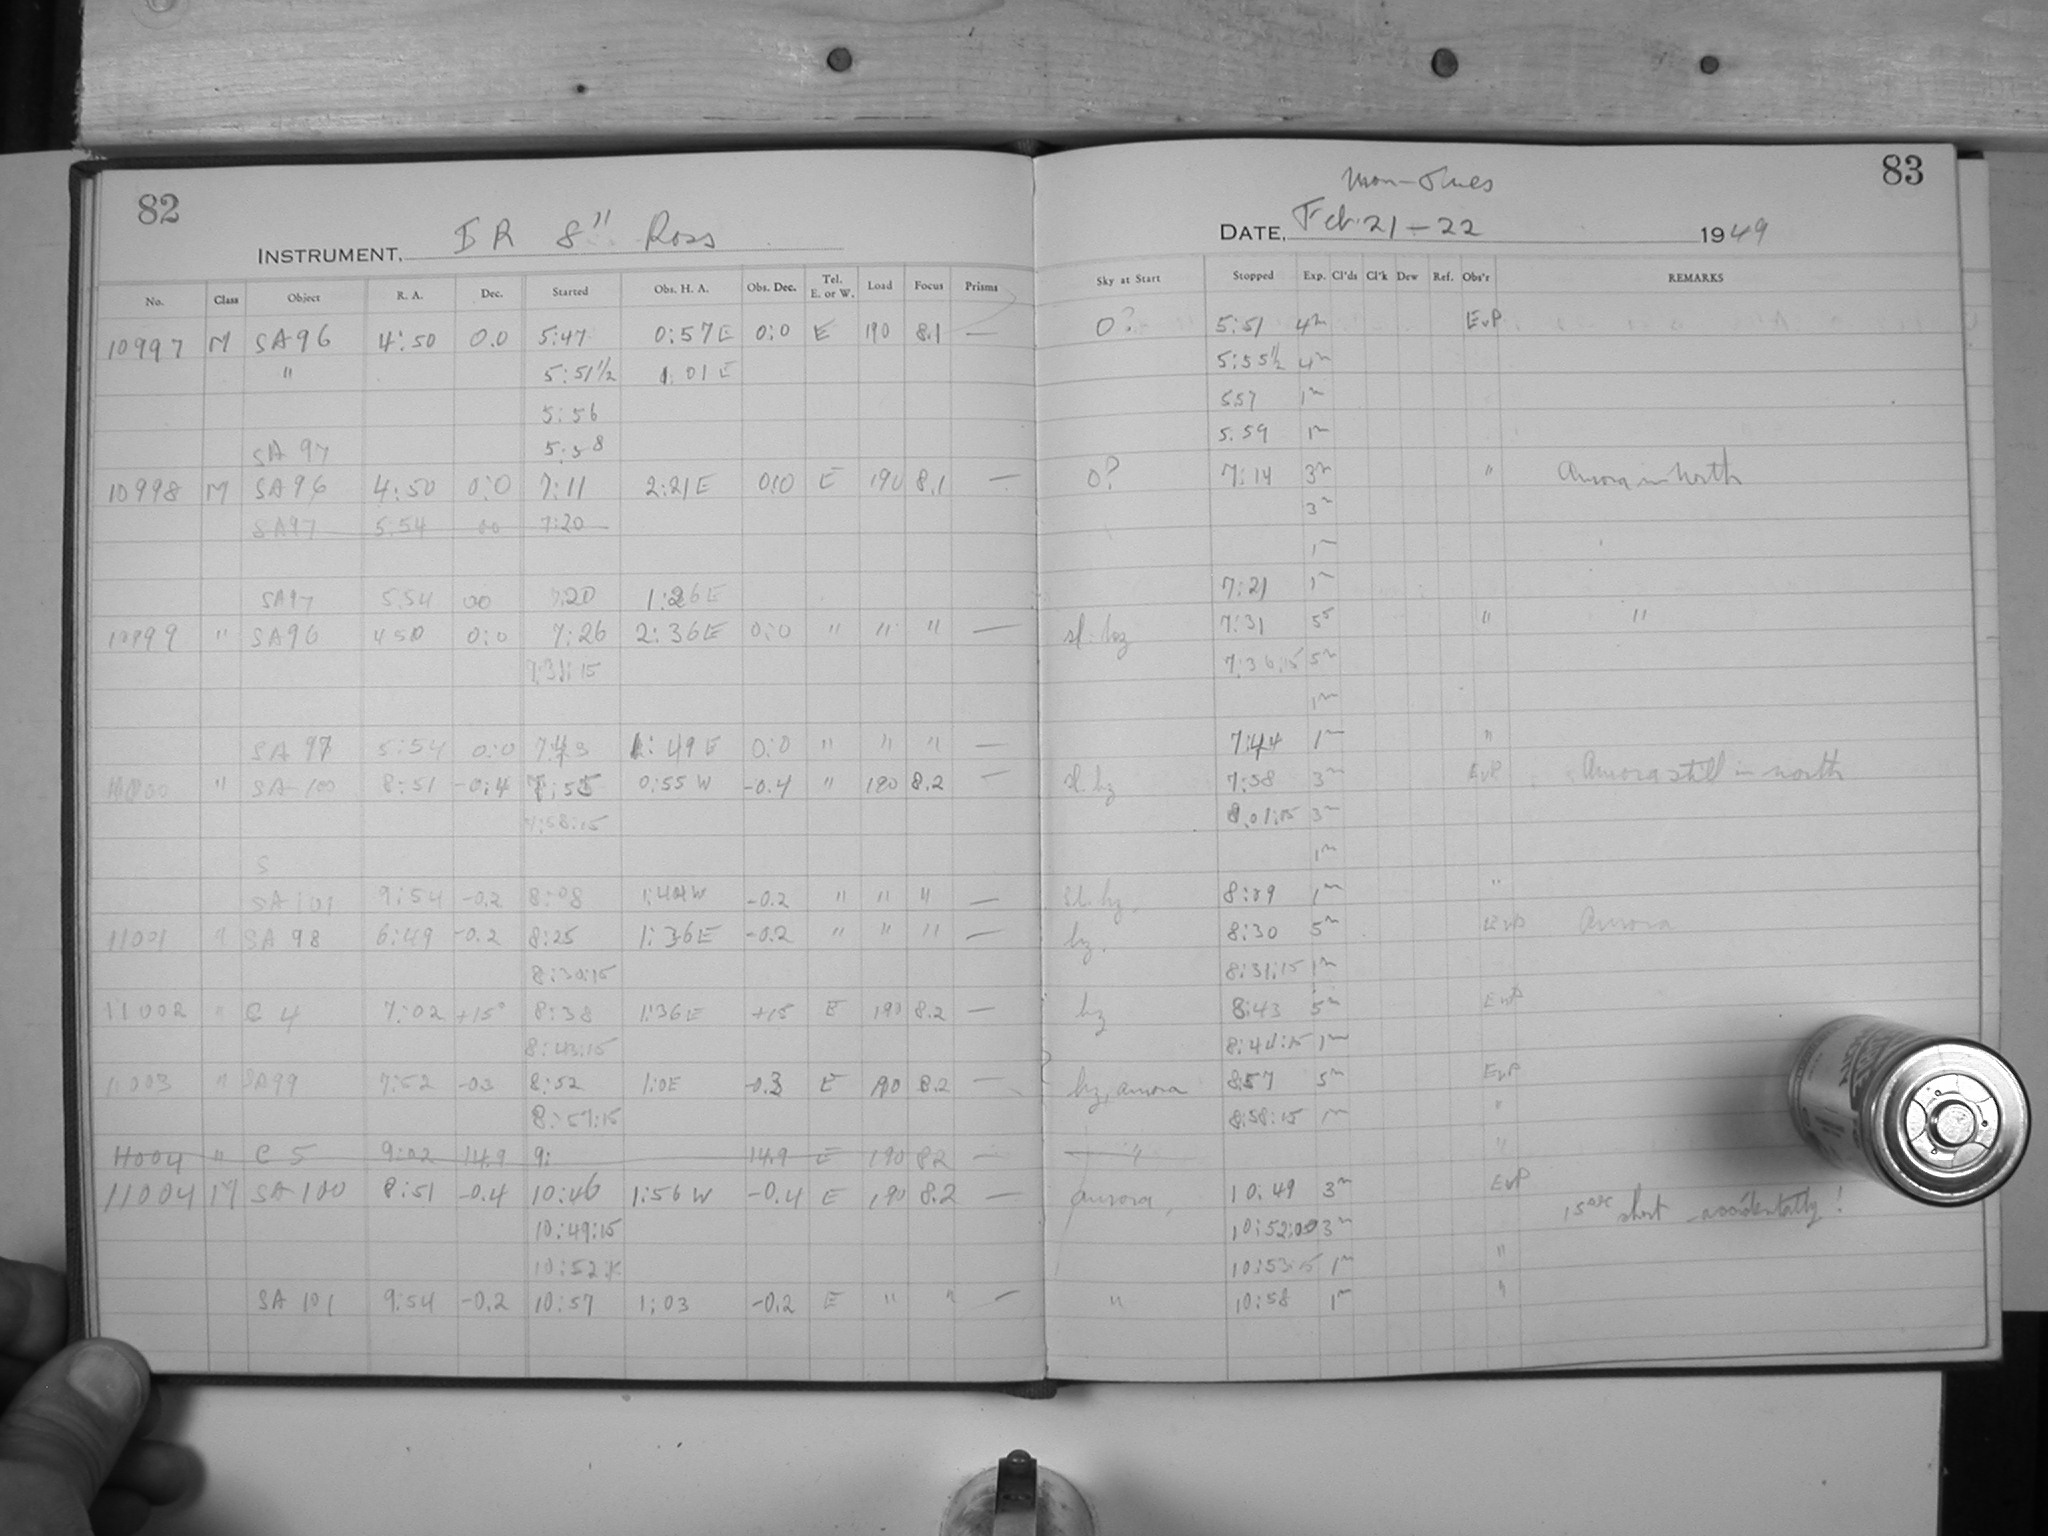 82
INSTRUMENT, IR 8" Ross
No. Class Object R. A. Dec. Started Obs. H. A. Obs. Dec. Tel. E. or W. Load Focus Prisms
10997 M SA96 4:50 0.0 5:47 0:57E 0:0 E 190 8.1 —
" 5:51½ 1 01 E
5:56
SA 97 5:58
10998 M SA96 4:50 0:0 7:11 2:21E 0:0 E 190 8.1 —
SA97 5:54 00 7:20
SA97 5.54 00 7:20 1:26E
10999 " SA96 4 50 0:0 7:26 2:36E 0:0 " " " —
7:31:15
SA 97 5:54 0:0 7:43 1:49E 0:0 " " " —
" SA 100 8:51 -0:4 7:55 0:55 W -0.4 " 190 8.2 —
7:58:15
S
SA 101 9:54 -0.2 8:08 1:44W -0.2 " " " —
11001 " SA 98 6:49 -0.2 8:25 1:36E -0.2 " " " —
8:30:15
11002 " C 4 7:02 +15° 8:38 1:36E +15 E 190 8.2 —
8:43:15
11003 " SA99 7:52 -03 8:52 1:0E -0.3 E 190 8.2 —
8:57:15
11004 " C 5 9:02 14.9 9: 14.9 E 190 8.2 —
11004 M SA 100 8:51 -0.4 10:46 1:56 W -0.4 E 190 8.2 —
10:49:15
10:52:15
SA 101 9:54 -0.2 10:57 1:03 -0.2 E " " —
83
Mon-Tues
DATE, Feb. 21-22 1949
Sky at Start Stopped Exp. Cl'ds Cl'k Dew Ref. Obs'r REMARKS
0? 5:51 4m EvP
5:55½ 4m
5 57 1m
5.59 1m
0? 7:14 3m " Aurora in North
3m
1m
7:21 1m
sl. hz 7:31 5s " "
7:36:15 5m
1m
7:44 1m "
sl. hz 7:58 3m EvP Aurora still in north
8:01:15 3m
1m
sl. hz. 8:09 1m "
hz. 8:30 5m EvP Aurora
8:31:15 1m
hz 8:43 5m EvP
8:44:15 1m
hz, aurora 8:57 5m EvP
8:58:15 1m "
" "
aurora, 10:49 3m EvP
10:52:00 3m 15sec short accidentally!
10:53:15 1m "
" 10:58 1m "